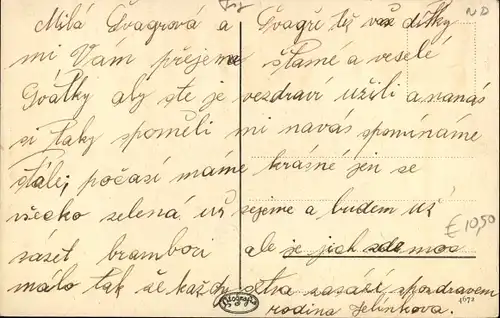 Milá Švagrová a Švagře též vaš dítky
mi Vám přejeme štasné a veselé
Svátky aby ste je vezdraví užili a nanás
si taky spoměli mi navás spomínáme
stále; počasí máme krásné jen se
všecko zelená už sejeme a budem už
sázet brambori ale je jich zde moc
málo tak se každy stra sasásí spozdravem
rodina Jelínkova.
ND
€ 10,50